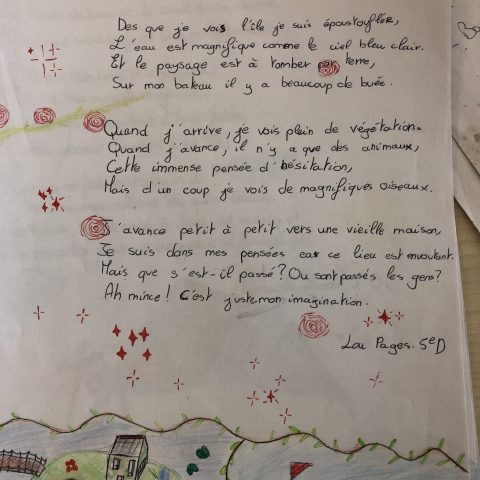 Des que je vois l'île je suis époustouflée,
L'eau est magnifique comme le ciel bleu clair.
Et le paysage est à tomber par terre,
Sur mon bateau il y a beaucoup de buée.
Quand j'arrive, je vois plein de végétation.
Quand j'avance, il n'y a que des animaux,
Cette immense pensée d'hésitation,
Mais d'un coup je vois de magnifiques oiseaux.
J'avance petit à petit vers une vieille maison,
Je suis dans mes pensées car ce lieu est envoutant.
Mais que s'est-il passé? Ou sont passés les gens?
Ah mince! C'est juste mon imagination.
Lou Pages. 5eD